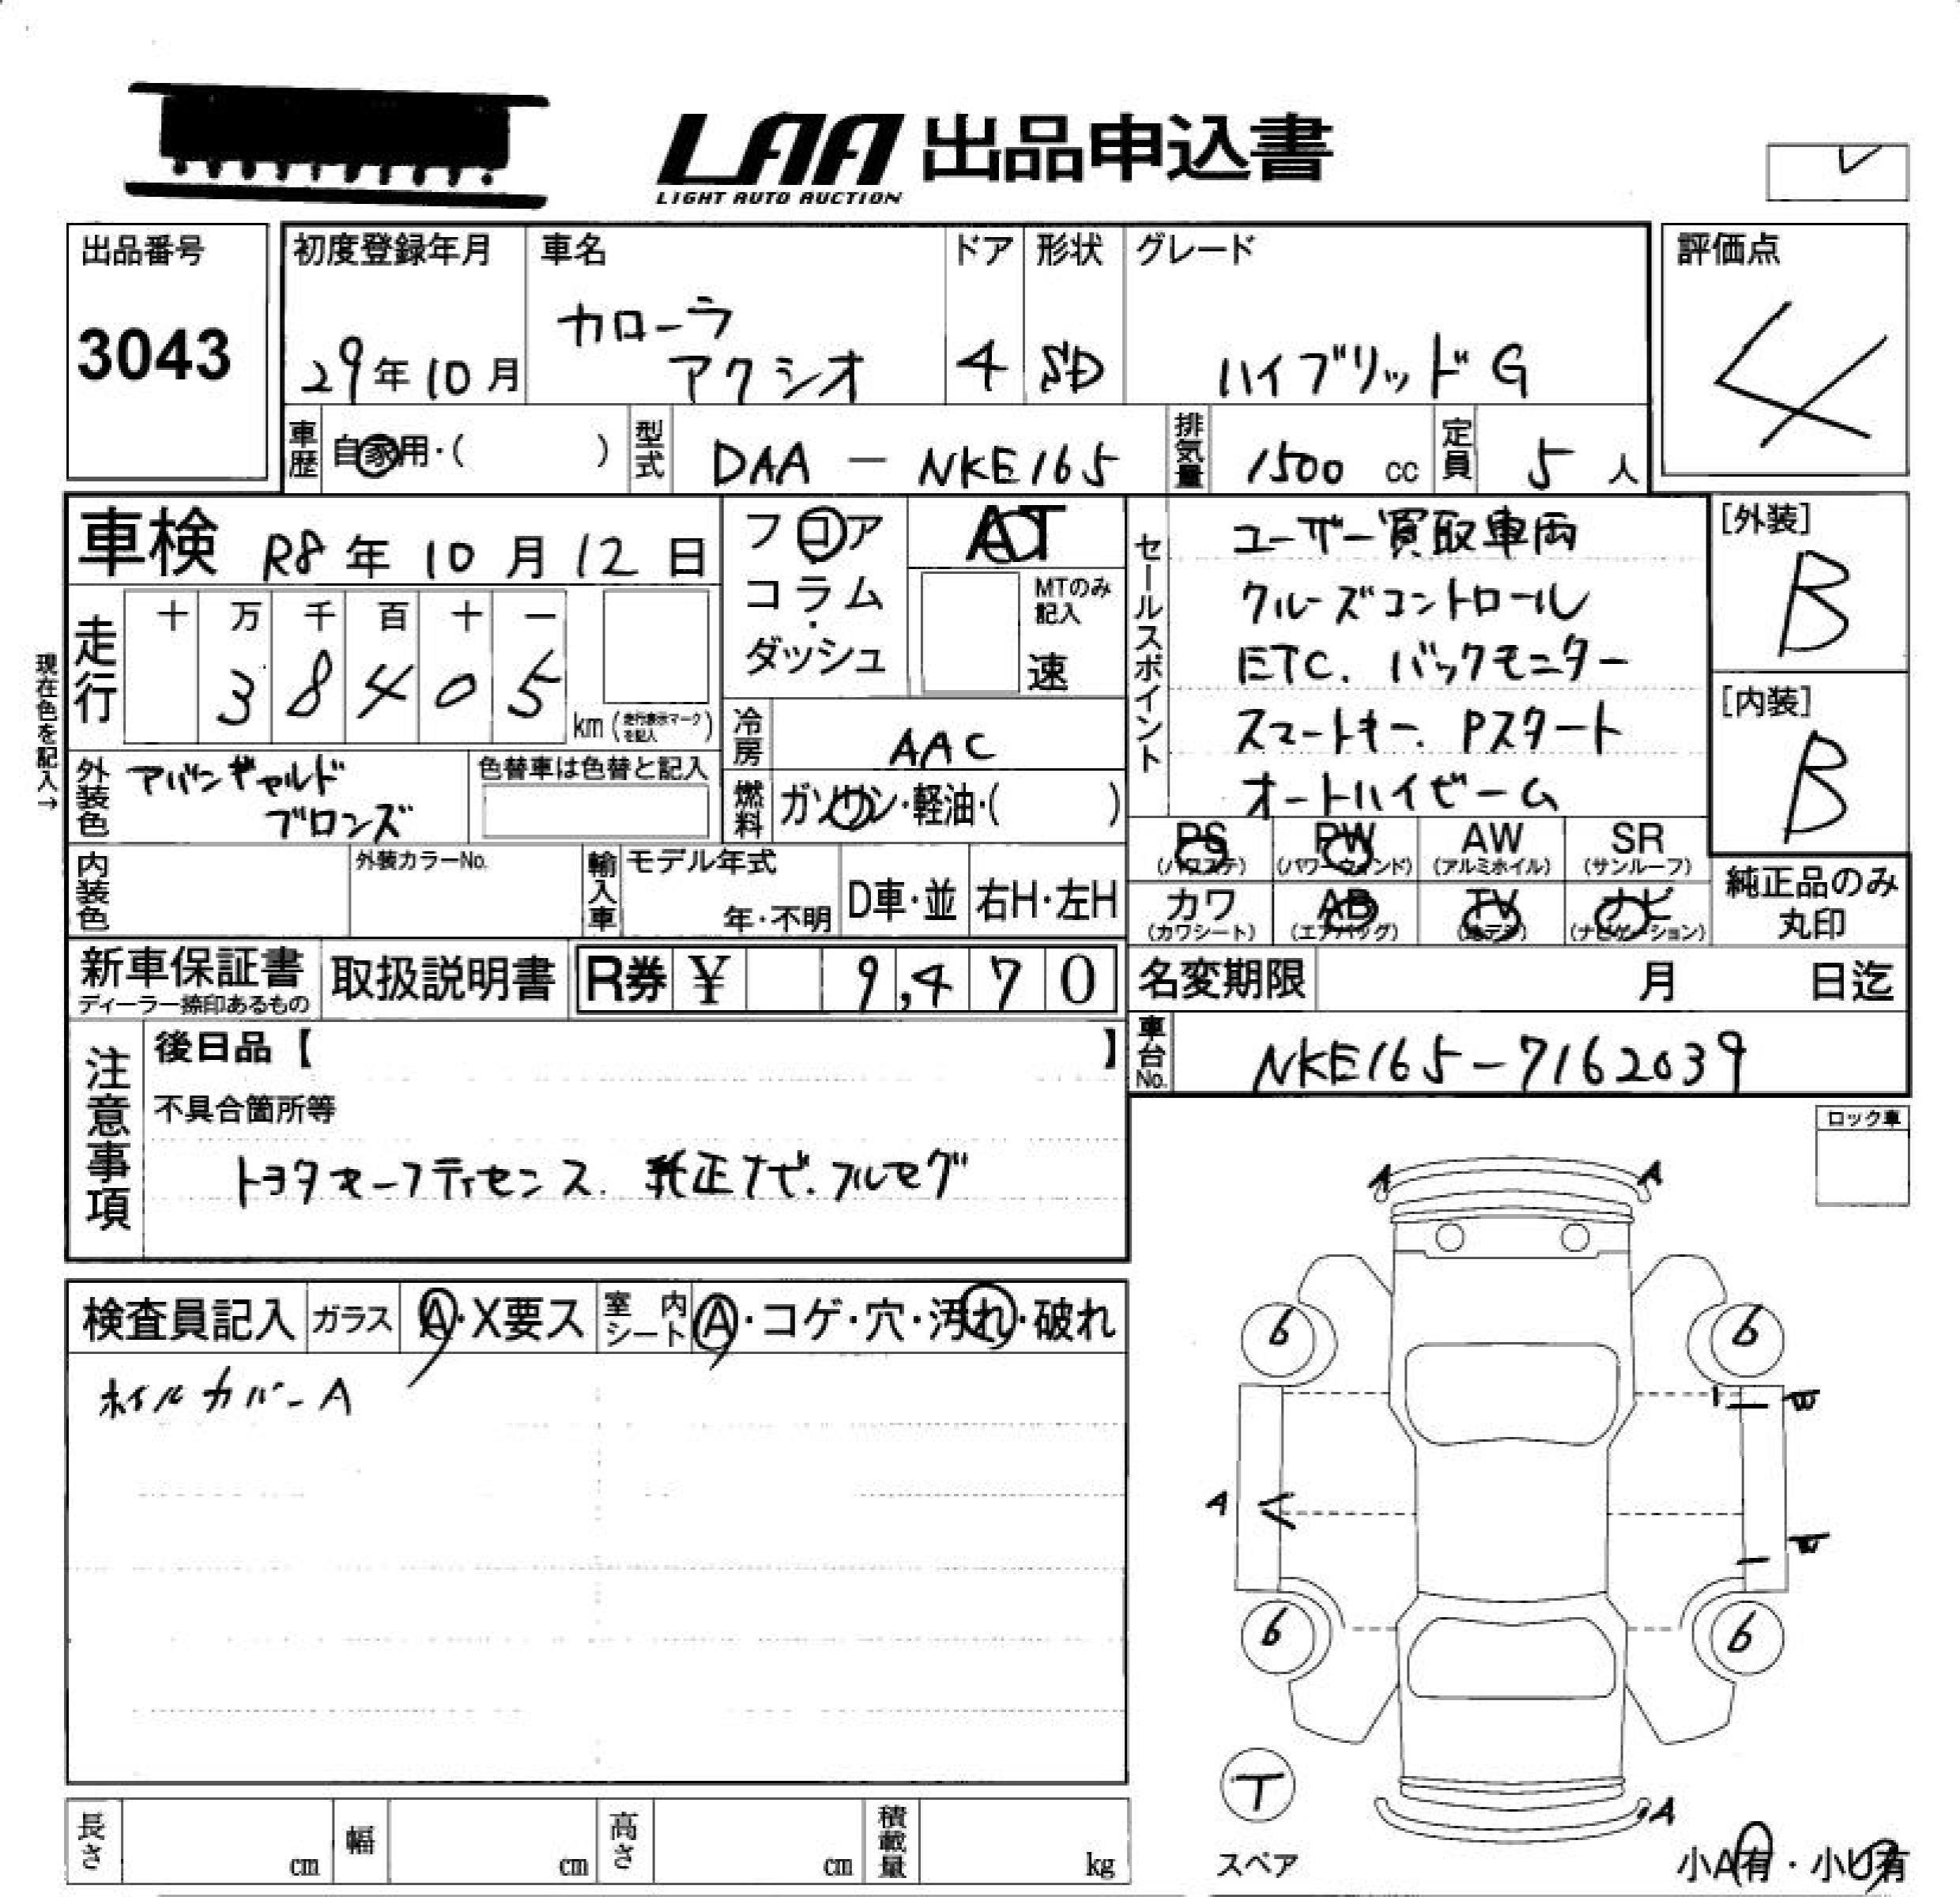 LAA 出品申込書
LIGHT AUTO AUCTION
出品番号
3043
初度登録年月
29年10月
車名
カローラ
アクシオ
ドア
4
形状
SD
グレード
ハイブリッドG
評価点
4
車歴 自家用・( )
型式 DAA-NKE165
排気量 1500 cc
定員 5 人
車検 R8年10月12日
フロア
コラム・
ダッシュ
AT
MTのみ
記入
速
走行
十 万 千 百 十 一
3 8 4 0 5
km (走行表示マークを記入)
現在色を記入→
冷房 AAC
燃料 ガソリン・軽油・( )
外装色 アバンギャルド
ブロンズ
色替車は色替と記入
内装色
外装カラーNo.
輸入車
モデル年式
年・不明
D車・並
右H・左H
セールスポイント
ユーザー買取車両
クルーズコントロール
ETC. バックモニター
スマートキー. Pスタート
オートハイビーム
[外装]
B
[内装]
B
PS (パワステ)
PW (パワーウィンド)
AW (アルミホイル)
SR (サンルーフ)
カワ (カワシート)
AB (エアバッグ)
TV (地デジ)
ナビ (ナビゲーション)
純正品のみ
丸印
新車保証書
ディーラー捺印あるもの
取扱説明書
R券 ¥ 9,470
名変期限 月 日迄
車台No. NKE165-7162039
注意事項
後日品【 】
不具合箇所等
トヨタセーフティセンス. 純正ナビ. フルセグ
ロック車
検査員記入
ガラス A・X要ス
室内シート A・コゲ・穴・汚れ・破れ
ホイルカバーA
A A
6 6
A
6 6
T
スペア
A
小A有・小U有
長さ cm
幅 cm
高さ cm
積載量 kg